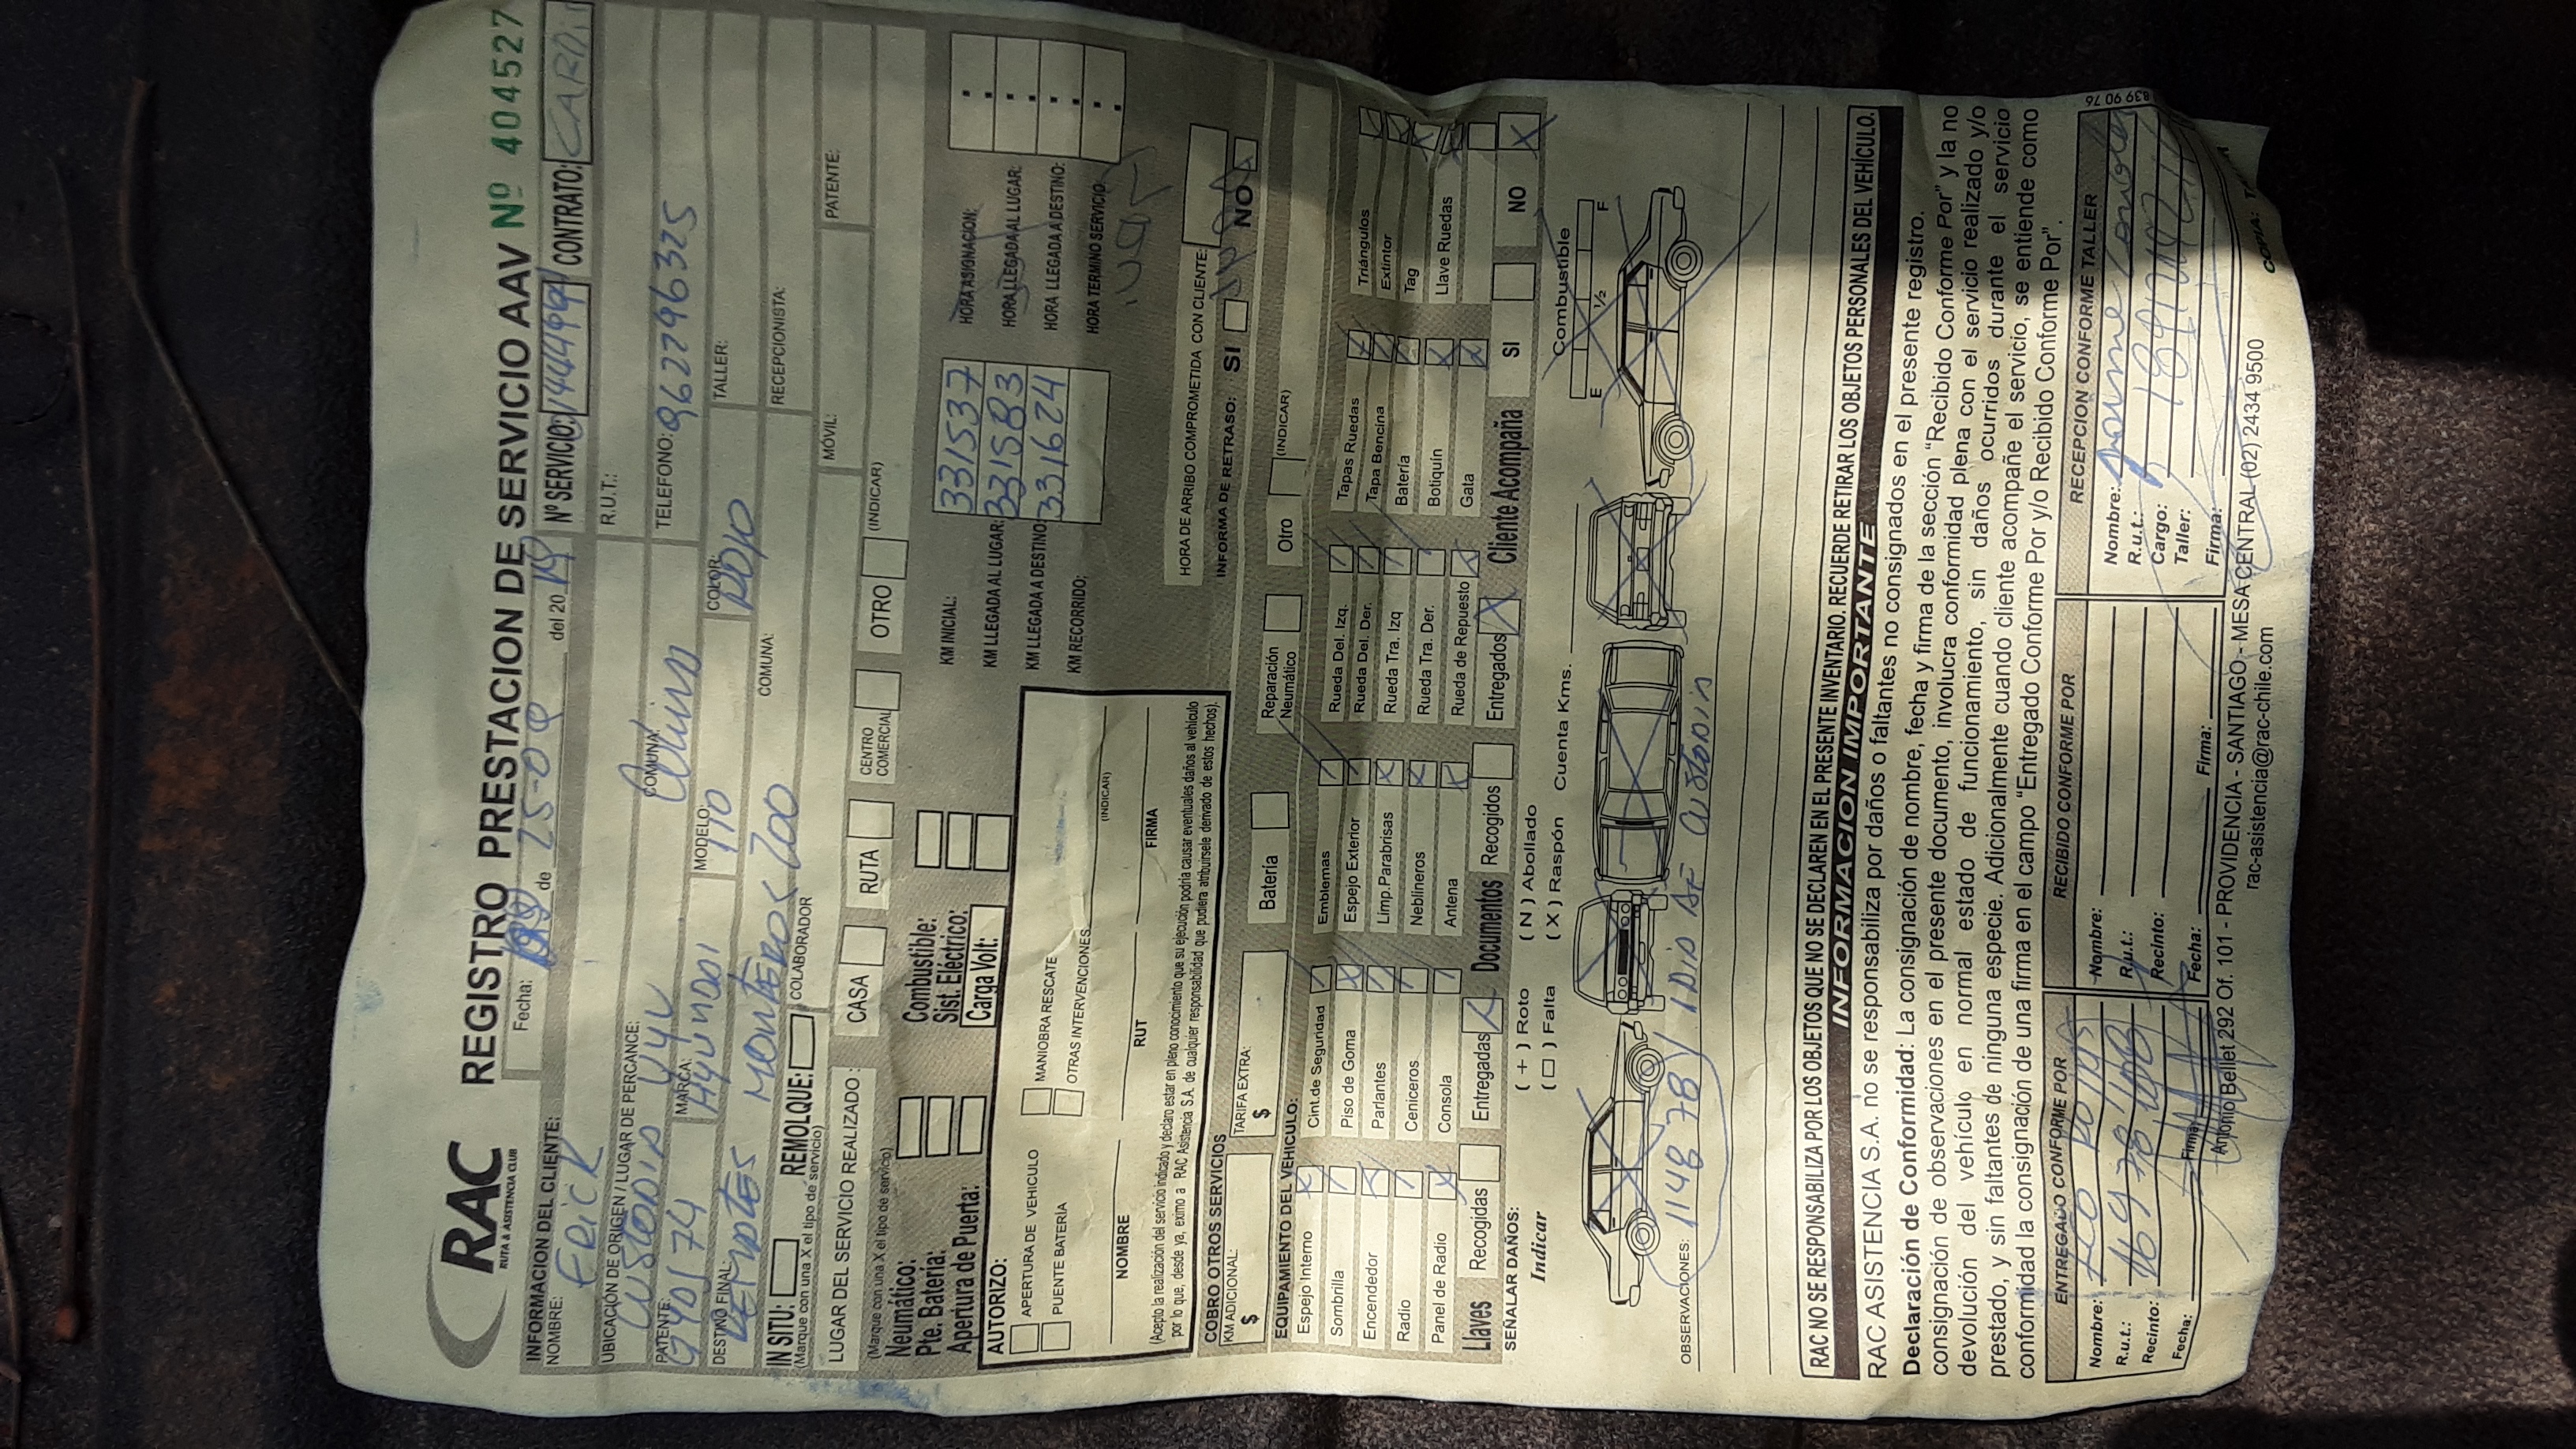 RAC
RUTA & ASISTENCIA CLUB
REGISTRO PRESTACION DE SERVICIO AAV Nº 404527
Fecha: de 25-09 del 20 19 Nº SERVICIO: CONTRATO: CARDIF
INFORMACION DEL CLIENTE:
NOMBRE: Erick R.U.T.:
UBICACIÓN DE ORIGEN / LUGAR DE PERCANCE: COMUNA: TELEFONO: 962296325
Custodia Colina
PATENTE: MARCA: Hyundai MODELO: I10 COLOR: Rojo TALLER:
DESTINO FINAL: Monteros 200 COMUNA: RECEPCIONISTA:
IN SITU: REMOLQUE: COLABORADOR MÓVIL: PATENTE:
(Marque con una X el tipo de servicio)
LUGAR DEL SERVICIO REALIZADO: CASA RUTA CENTRO COMERCIAL OTRO (INDICAR)
(Marque con una X el tipo de servicio)
Neumático: Combustible:
Pte. Bateria: Sist. Eléctrico:
Apertura de Puerta: Carga Volt:
KM INICIAL: 331537 HORA ASIGNACION:
KM LLEGADA AL LUGAR: 331583 HORA LLEGADA AL LUGAR:
KM LLEGADA A DESTINO: 331624 HORA LLEGADA A DESTINO:
KM RECORRIDO: HORA TERMINO SERVICIO
AUTORIZO:
APERTURA DE VEHICULO MANIOBRA RESCATE
PUENTE BATERÍA OTRAS INTERVENCIONES (INDICAR)
NOMBRE RUT FIRMA
(Acepto la realización del servicio indicado y declaro estar en pleno conocimiento que su ejecución podría causar eventuales daños al vehículo
por lo que, desde ya, eximo a RAC Asistencia S.A. de cualquier responsabilidad que pudiera atribuírsele derivado de estos hechos).
HORA DE ARRIBO COMPROMETIDA CON CLIENTE:
INFORMA DE RETRASO: SI NO
COBRO OTROS SERVICIOS
KM ADICIONAL: $ TARIFA EXTRA: $ Batería Reparación Neumático Otro (INDICAR)
EQUIPAMIENTO DEL VEHICULO:
Espejo Interno Cint.de Seguridad Emblemas Rueda Del. Izq. Tapas Ruedas Triángulos
Sombrilla Piso de Goma Espejo Exterior Rueda Del. Der. Tapa Bencina Extintor
Encendedor Parlantes Limp.Parabrisas Rueda Tra. Izq Batería Tag
Radio Ceniceros Neblineros Rueda Tra. Der. Botiquín Llave Ruedas
Panel de Radio Consola Antena Rueda de Repuesto Gata
Llaves Recogidas Entregadas Documentos Recogidos Entregados Cliente Acompaña SI NO
SEÑALAR DAÑOS: ( + ) Roto ( N ) Abollado
Indicar ( □ ) Falta ( X ) Raspón Cuenta Kms. Combustible
E 1/2 F
OBSERVACIONES: 114878 Custodia
RAC NO SE RESPONSABILIZA POR LOS OBJETOS QUE NO SE DECLAREN EN EL PRESENTE INVENTARIO. RECUERDE RETIRAR LOS OBJETOS PERSONALES DEL VEHÍCULO.
INFORMACION IMPORTANTE
RAC ASISTENCIA S.A. no se responsabiliza por daños o faltantes no consignados en el presente registro.
Declaración de Conformidad: La consignación de nombre, fecha y firma de la sección “Recibido Conforme Por” y la no
consignación de observaciones en el presente documento, involucra conformidad plena con el servicio realizado y/o
devolución del vehículo en normal estado de funcionamiento, sin daños ocurridos durante el servicio
prestado, y sin faltantes de ninguna especie. Adicionalmente cuando cliente acompañe el servicio, se entiende como
conformidad la consignación de una firma en el campo “Entregado Conforme Por y/o Recibido Conforme Por”.
ENTREGADO CONFORME POR RECIBIDO CONFORME POR RECEPCION CONFORME TALLER
Nombre: Leo Rojas Nombre: Nombre:
R.u.t.: R.u.t.: R.u.t.:
Recinto: Recinto: Cargo:
Fecha: Firma: Fecha: Firma: Taller:
Firma:
Antonio Bellet 292 Of. 101 - PROVIDENCIA - SANTIAGO - MESA CENTRAL (02) 2434 9500
rac-asistencia@rac-chile.com
COPIA:
839 90 76